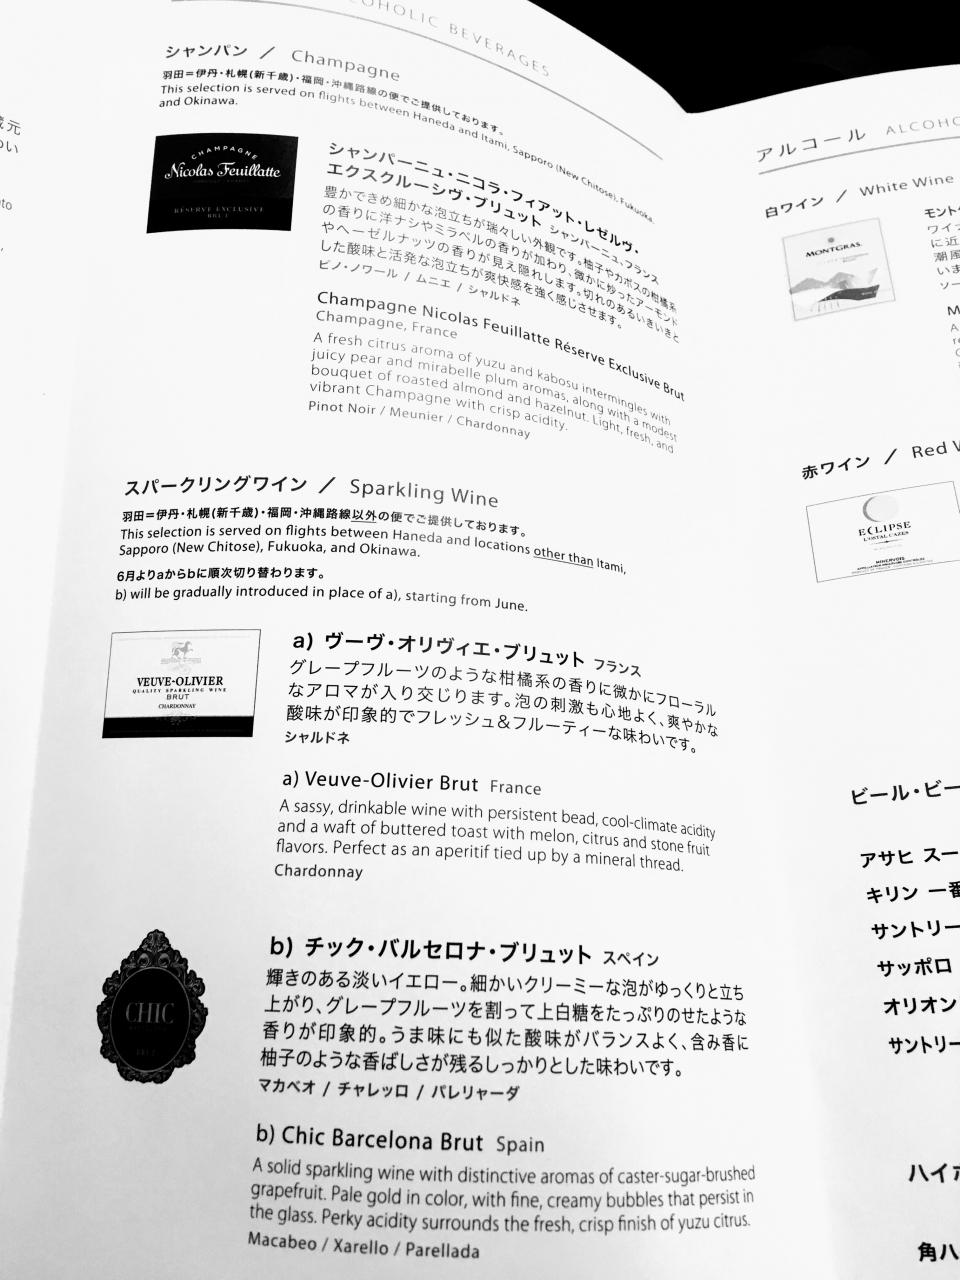 ALCOHOLIC BEVERAGES
シャンパン / Champagne
羽田=伊丹・札幌(新千歳)・福岡・沖縄路線の便でご提供しております。
This selection is served on flights between Haneda and Itami, Sapporo (New Chitose), Fukuoka,
and Okinawa.
CHAMPAGNE
Nicolas Feuillatte
RÉSERVE EXCLUSIVE
BRUT
シャンパーニュ・ニコラ・フィアット・レゼルヴ・
エクスクルーシヴ・ブリュット シャンパーニュ、フランス
豊かできめ細かな泡立ちが瑞々しい外観です。柚子やカボスの柑橘系
の香りに洋ナシやミラベルの香りが加わり、微かに炒ったアーモンド
やヘーゼルナッツの香りが見え隠れします。切れのあるいきいきと
した酸味と活発な泡立ちが爽快感を強く感じさせます。
ピノ・ノワール / ムニエ / シャルドネ
Champagne Nicolas Feuillatte Réserve Exclusive Brut
Champagne, France
A fresh citrus aroma of yuzu and kabosu intermingles with
juicy pear and mirabelle plum aromas, along with a modest
bouquet of roasted almond and hazelnut. Light, fresh, and
vibrant Champagne with crisp acidity.
Pinot Noir / Meunier / Chardonnay
スパークリングワイン / Sparkling Wine
羽田=伊丹・札幌(新千歳)・福岡・沖縄路線以外の便でご提供しております。
This selection is served on flights between Haneda and locations other than Itami,
Sapporo (New Chitose), Fukuoka, and Okinawa.
6月よりaからbに順次切り替わります。
b) will be gradually introduced in place of a), starting from June.
VEUVE-OLIVIER
QUALITY SPARKLING WINE
BRUT
CHARDONNAY
a) ヴーヴ・オリヴィエ・ブリュット フランス
グレープフルーツのような柑橘系の香りに微かにフローラル
なアロマが入り交じります。泡の刺激も心地よく、爽やかな
酸味が印象的でフレッシュ&フルーティーな味わいです。
シャルドネ
a) Veuve-Olivier Brut France
A sassy, drinkable wine with persistent bead, cool-climate acidity
and a waft of buttered toast with melon, citrus and stone fruit
flavors. Perfect as an aperitif tied up by a mineral thread.
Chardonnay
CHIC
b) チック・バルセロナ・ブリュット スペイン
輝きのある淡いイエロー。細かいクリーミーな泡がゆっくりと立ち
上がり、グレープフルーツを割って上白糖をたっぷりのせたような
香りが印象的。うま味にも似た酸味がバランスよく、含み香に
柚子のような香ばしさが残るしっかりとした味わいです。
マカベオ / チャレッロ / パレリャーダ
b) Chic Barcelona Brut Spain
A solid sparkling wine with distinctive aromas of caster-sugar-brushed
grapefruit. Pale gold in color, with fine, creamy bubbles that persist in
the glass. Perky acidity surrounds the fresh, crisp finish of yuzu citrus.
Macabeo / Xarello / Parellada
アルコール ALCOHO
白ワイン / White Wine
MONTGRAS
モント
ワイ
に近
潮風
いま
ソー
M
A
赤ワイン / Red
ECLIPSE
L'OSTAL CAZES
MINERVOIS
ビール・ビー
アサヒ スー
キリン 一番
サントリー
サッポロ
オリオン
サントリー
ハイ
角ハ